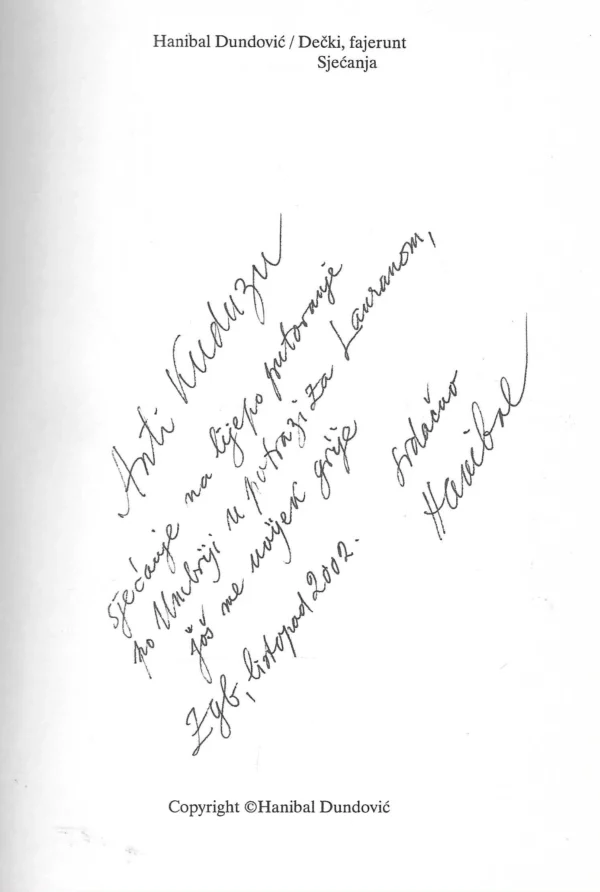 Hanibal Dundović / Dečki, fajerunt
Sjećanja
Anti Kuduzu
sjećanje na lijepo putovanje
po Umbriji u potrazi za Lauranom,
još me uvijek grije
srdačno
Hanibal
Zgb, listopad 2002.
Copyright ©Hanibal Dundović